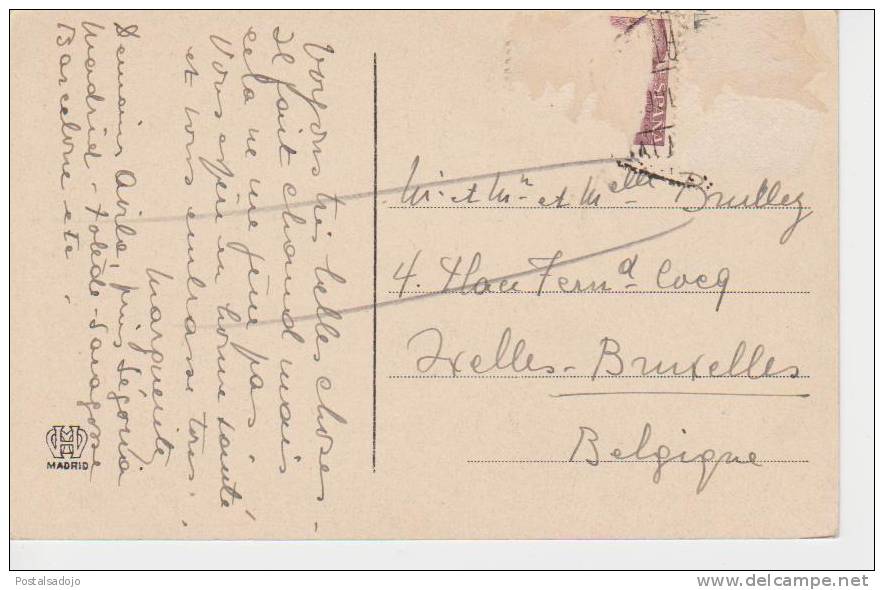 Voyons très belles choses -
Il fait chaud mais
cela ne me gêne pas.
Vous espère en bonne santé
et vous embrasse tous.
Marguerite
Demain Avila, puis Ségovia
Madrid - Tolède - Saragosse
Barcelone etc.
MADRID
ESPAÑA
Mr et Mme et Melle Brulley
4. Place Fernd Cocq
Ixelles - Bruxelles
Belgique
Postalsadojo
delcampe.net